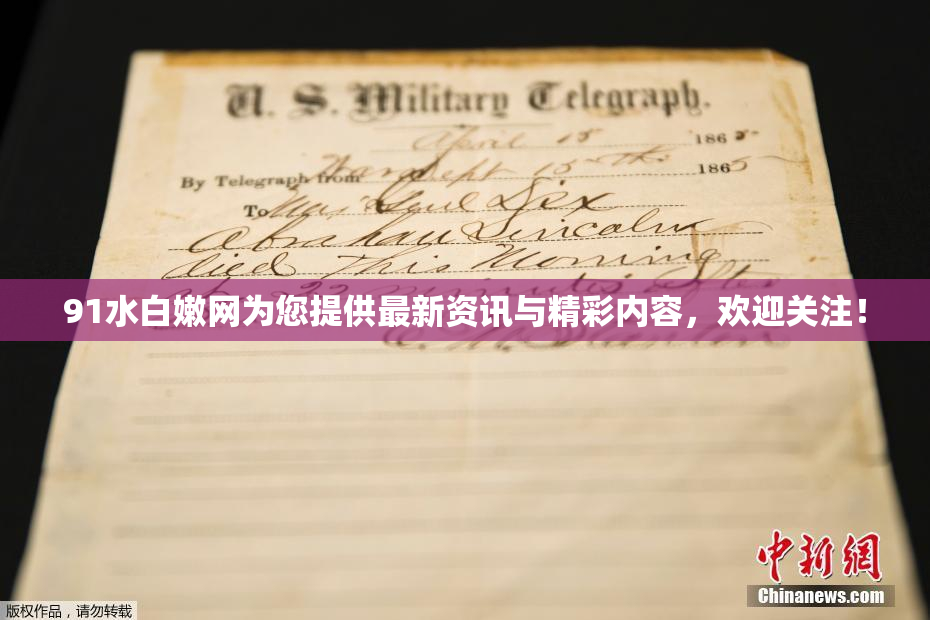 U. S. Military Telegraph.
April 15 1865
By Telegraph from War Dept 15th 1865
To Maj Genl Dix
Abraham Lincoln
died This Morning
22 minutes after
91水白嫩网为您提供最新资讯与精彩内容，欢迎关注！
E. M. Stanton
中新网
Chinanews.com
版权作品，请勿转载